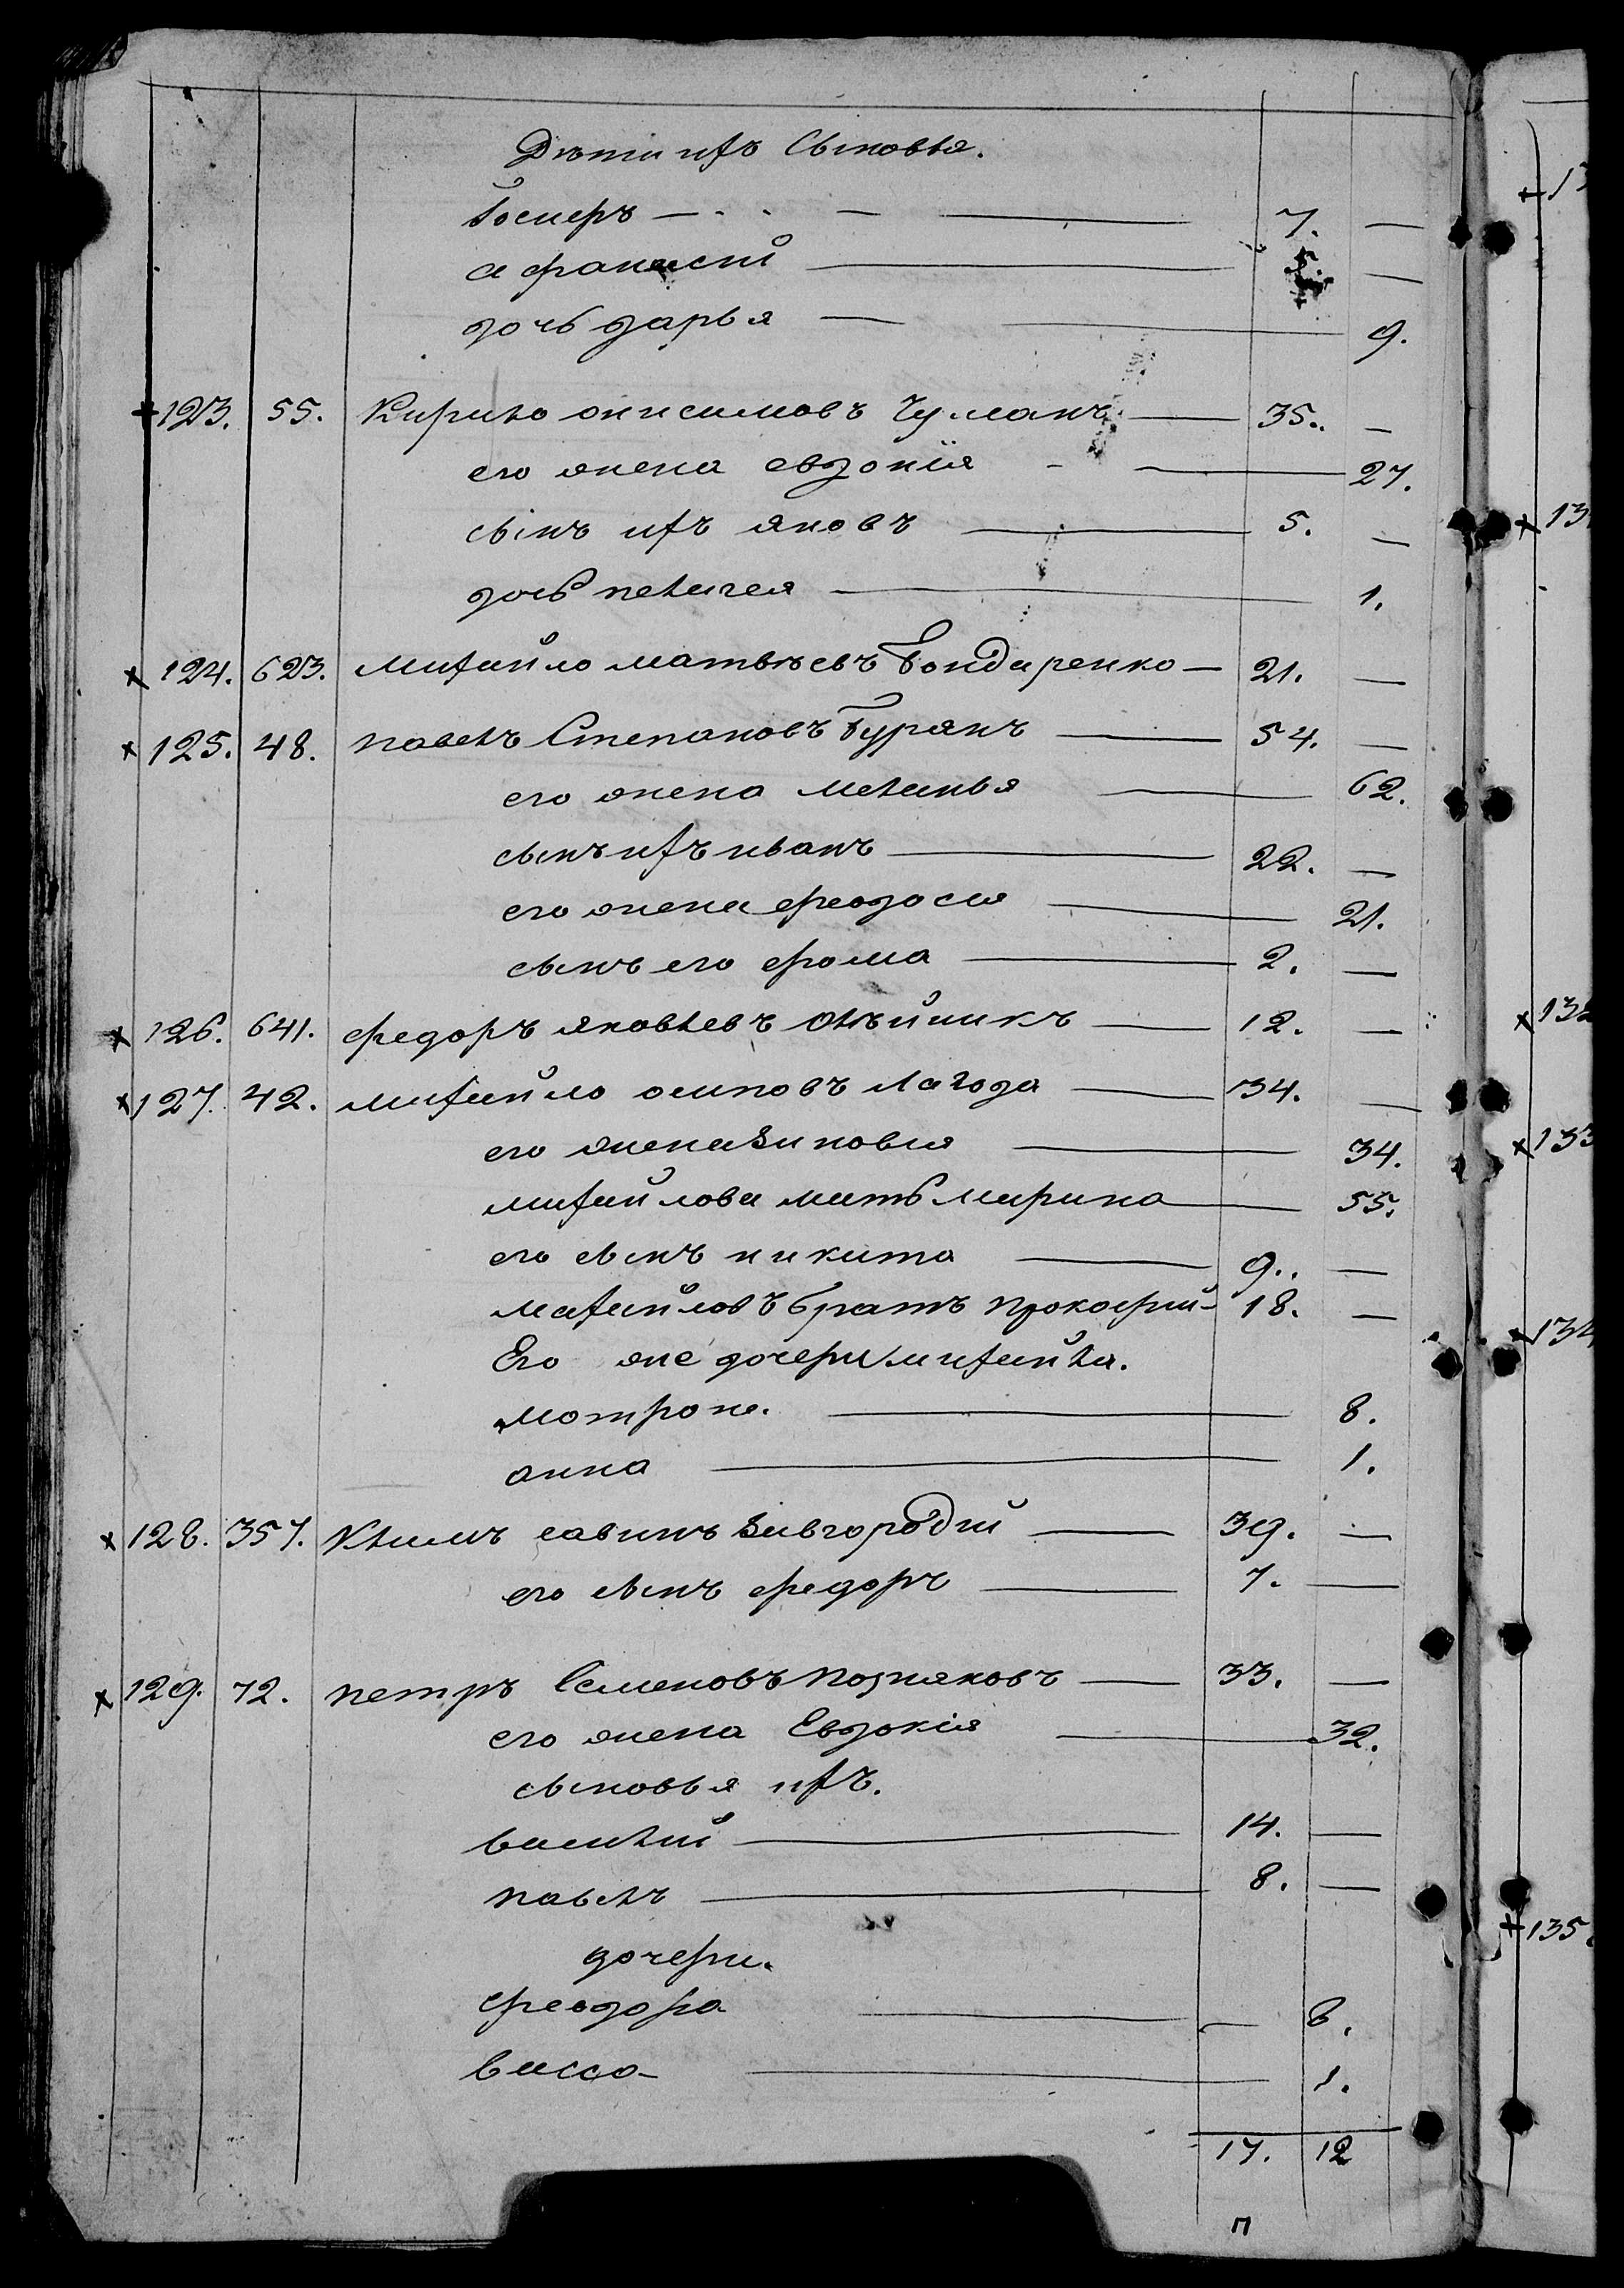 Дѣти ихъ Сыновья.
Іосифъ — 7. —
афанасій — 5. —
дочь дарья — 9.
+ 123. 55. Кирило онисимовъ Чуманъ — 35. —
его жена евдокія — 27.
сынъ ихъ яковъ — 5. —
дочь пелагея — 1.
х 124. 623. михайло матвѣевъ Бондаренко — 21. —
х 125. 48. павелъ Степановъ Бурякъ — 54. —
его жена меланья — 62.
сынъ ихъ иванъ — 22. —
его жена феодосия — 21.
сынъ его фома — 2. —
х 126. 641. федоръ яковлевъ Олѣйникъ — 12. —
х 127. 42. михайло осиповъ Лагода — 34. —
его жена Зиновия — 34.
михайлова мать марина — 55.
его сынъ никита — 9. —
михайловъ братъ прокофий — 18. —
Его же дочери михайла.
мотрона. — 8.
анна — 1.
х 128. 357. Климъ савинъ Завгородній — 39. —
его сынъ федоръ — 7. —
х 129. 72. петръ Семеновъ позняковъ — 33. —
его жена Евдокія — 32.
сыновья ихъ.
василій — 14. —
павелъ — 8. —
дочери.
феодора — 8.
васса — 1.
17. 12
п
+ 13
х 13
х 132
х 133
х 134
+ 135.